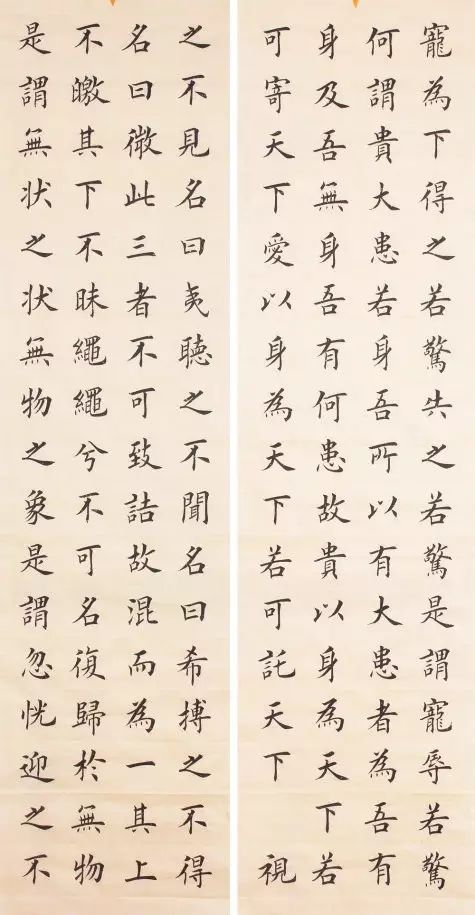 寵為下得之若驚失之若驚是謂寵辱若驚
何謂貴大患若身吾所以有大患者為吾有
身及吾無身吾有何患故貴以身為天下若
可寄天下愛以身為天下若可託天下 視
之不見名曰夷聽之不聞名曰希搏之不得
名曰微此三者不可致詰故混而為一其上
不皦其下不昧繩繩兮不可名復歸於無物
是謂無状之状無物之象是謂忽恍迎之不